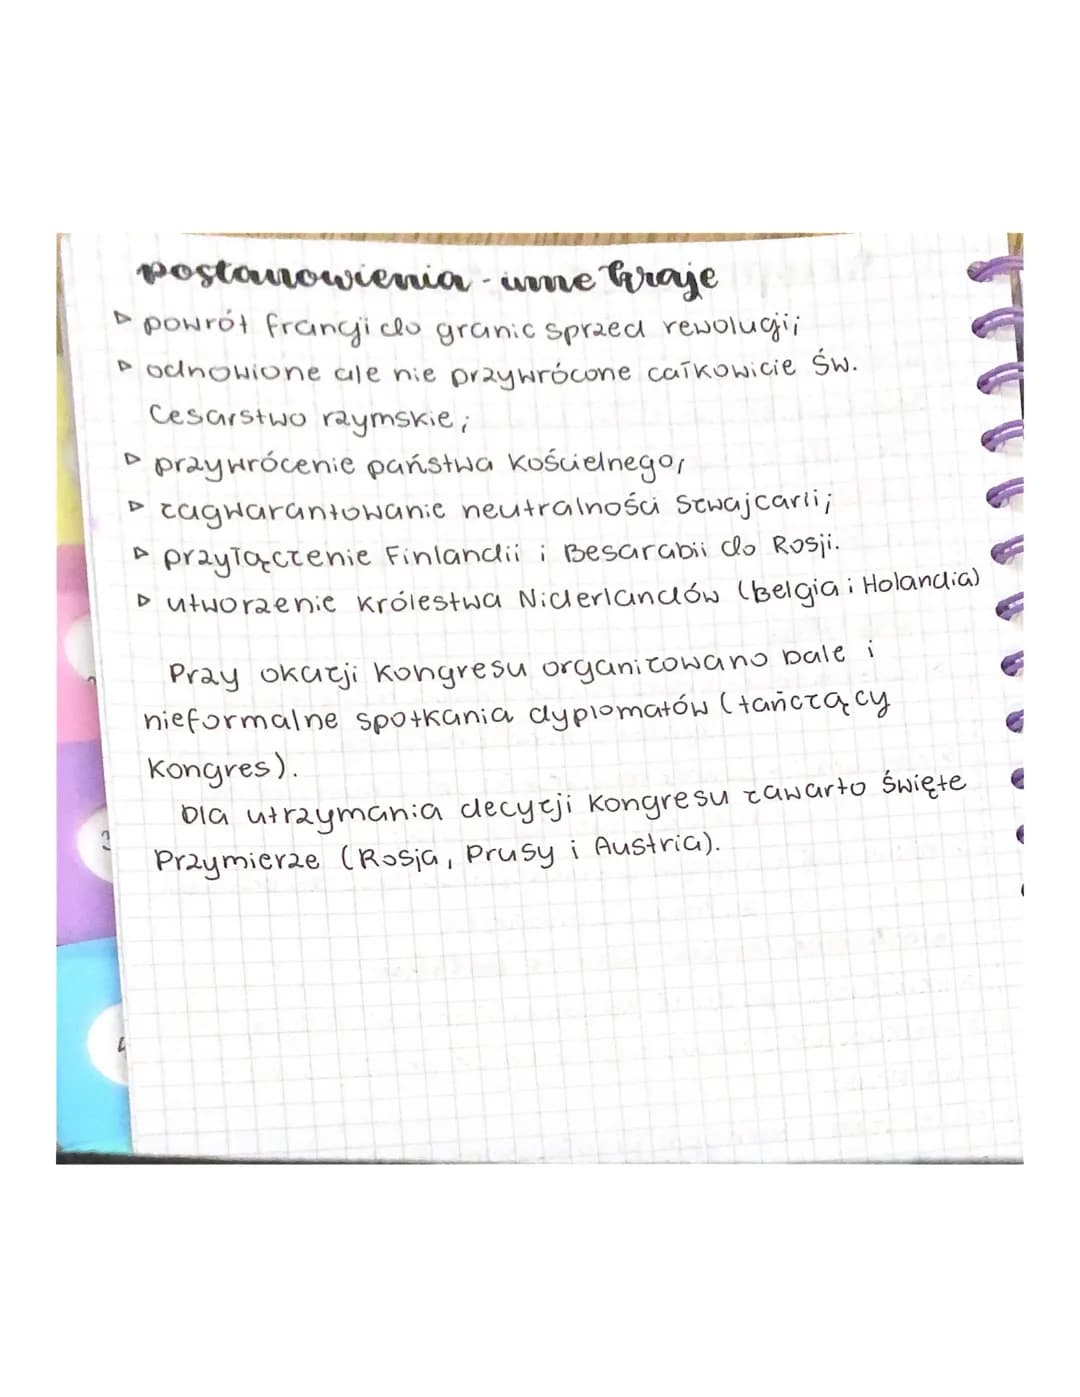 postanowienia - inne kraje
▷ powrót francji do granic sprzed rewolucji;
▷ odnowione ale nie przywrócone całkowicie Św.
Cesarstwo rzymskie;
▷ przywrócenie państwa Kościelnego,
▷ zagwarantowanie neutralności Szwajcarii;
▷ przyłączenie Finlandii i Besarabii do Rosji.
▷ utworzenie królestwa Niderlandów (Belgia i Holandia)
Przy okazji kongresu organizowano bale i
nieformalne spotkania dyplomatów (tańczący
kongres).
Dla utrzymania decyzji kongresu zawarto święte
Przymierze (Rosja, Prusy i Austria).
3
4